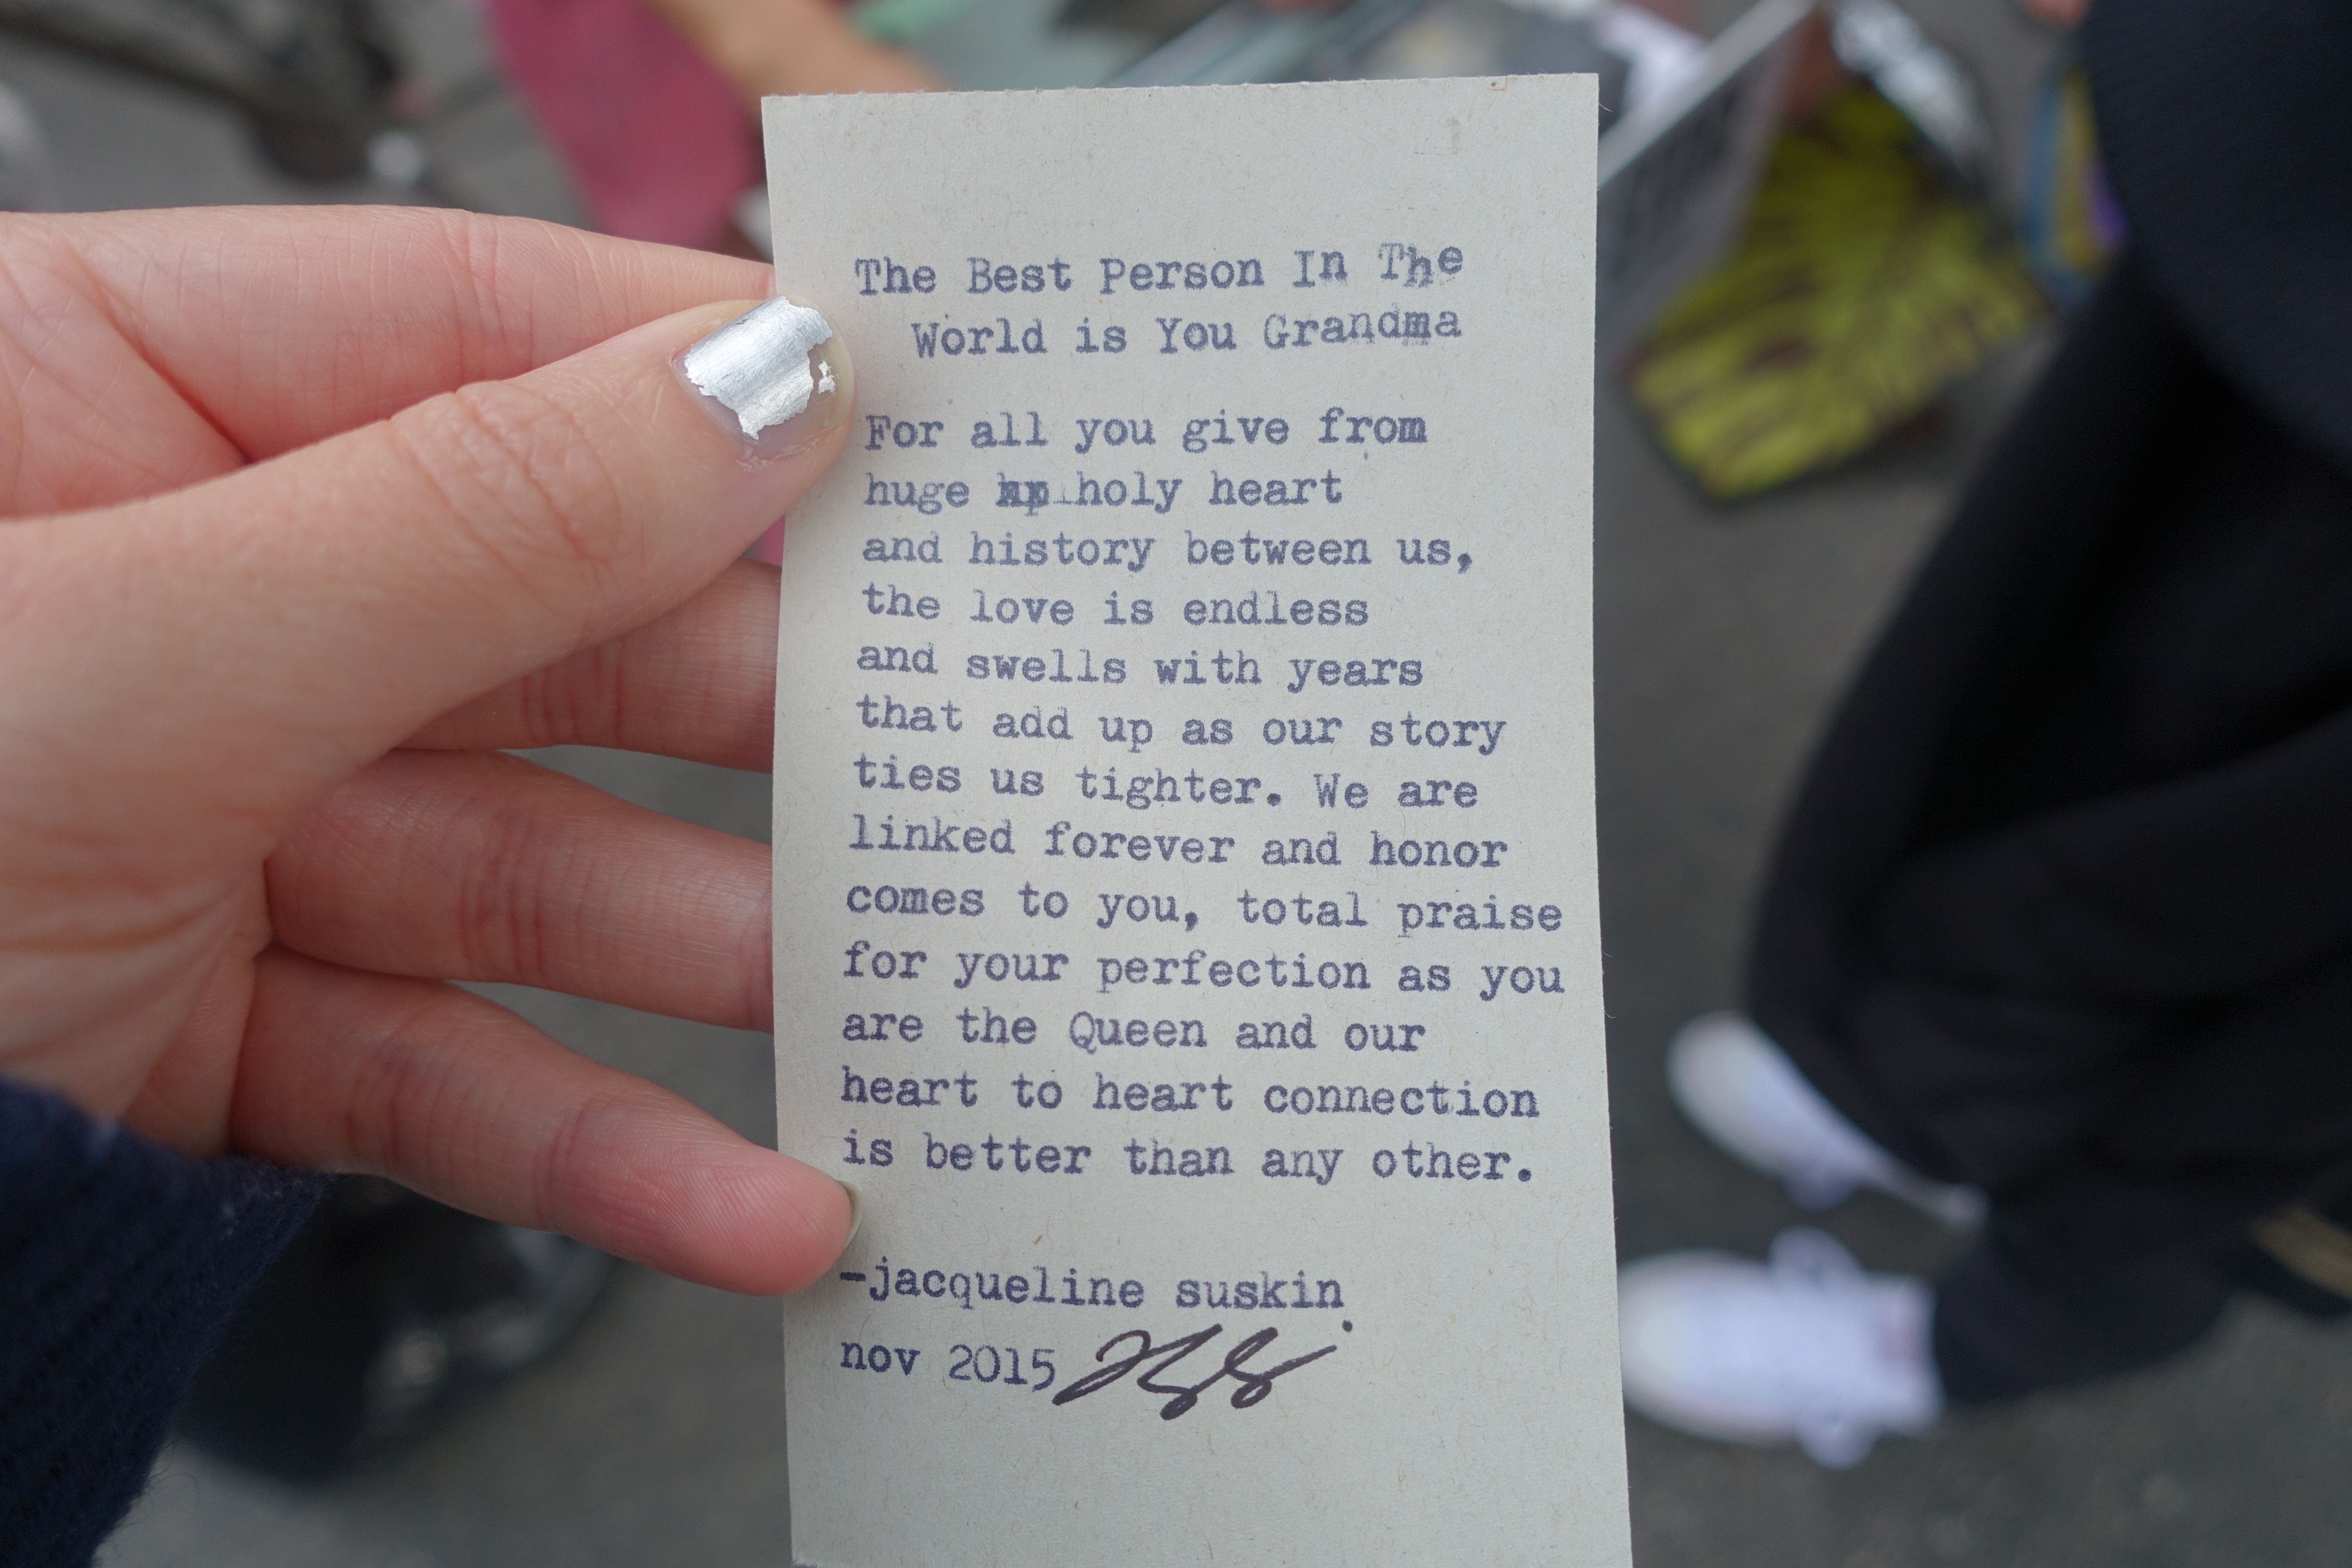 The Best Person In The
World is You Grandma
For all you give from
huge holy heart
and history between us,
the love is endless
and swells with years
that add up as our story
ties us tighter. We are
linked forever and honor
comes to you, total praise
for your perfection as you
are the Queen and our
heart to heart connection
is better than any other.
-jacqueline suskin
nov 2015